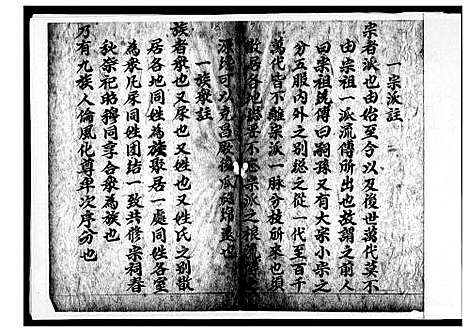 一宗派註
宗者派也由始至今以及後世萬代莫不
由宗祖一派流傳所出也故謂之前人
曰宗祖後傳曰嗣孫又有大宗小宗之
分五服內外之別總之從一代至百千
萬代皆不離宗派一脉分枝所來也須
散居各地總要不忘宗派之根
源後可以克昌厥後瓜瓞綿也
一族眾註
族者眾也又尽也又姓也又姓氏之別散
居各地同姓為族聚居一處同姓各室
為眾凡尽同姓团結一致共修宗祠春
秋宗祀昭穆同享合眾為族也
乃有九族人倫風化尊卑次序分也